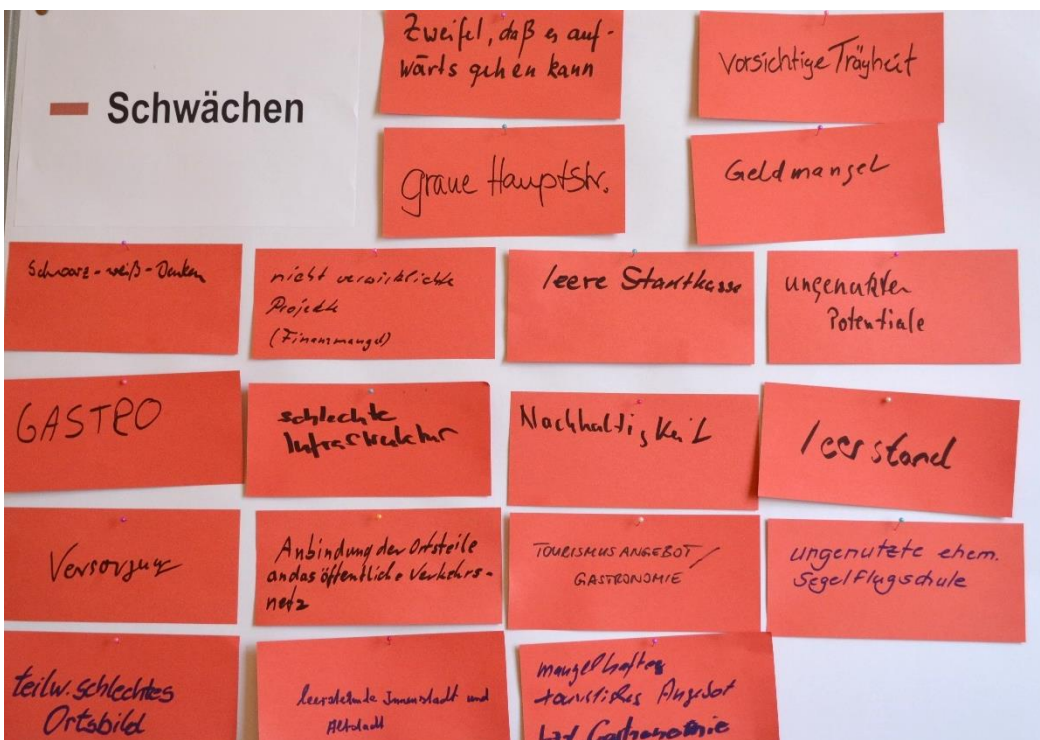 Schwächen
Zweifel, daß es auf-
wärts gehen kann
Vorsichtige Trägheit
graue Hauptstr.
Geldmangel
Schwarz-weiß-Denken
nicht verwirklichte
Projekte
(Finanzmangel)
leere Stadtkasse
ungenutzte
Potentiale
GASTRO
schlechte
Infrastruktur
Nachhaltigkeit
leerstand
Versorgung
Anbindung der Ortsteile
an das öffentliche Verkehrs-
netz
TOURISMUSANGEBOT/
GASTRONOMIE
ungenutzte ehem.
Segelflugschule
teilw. schlechtes
Ortsbild
leerstehende Innenstadt und
Altstadt
mangelhaftes
touristisches Angebot
Gastronomie